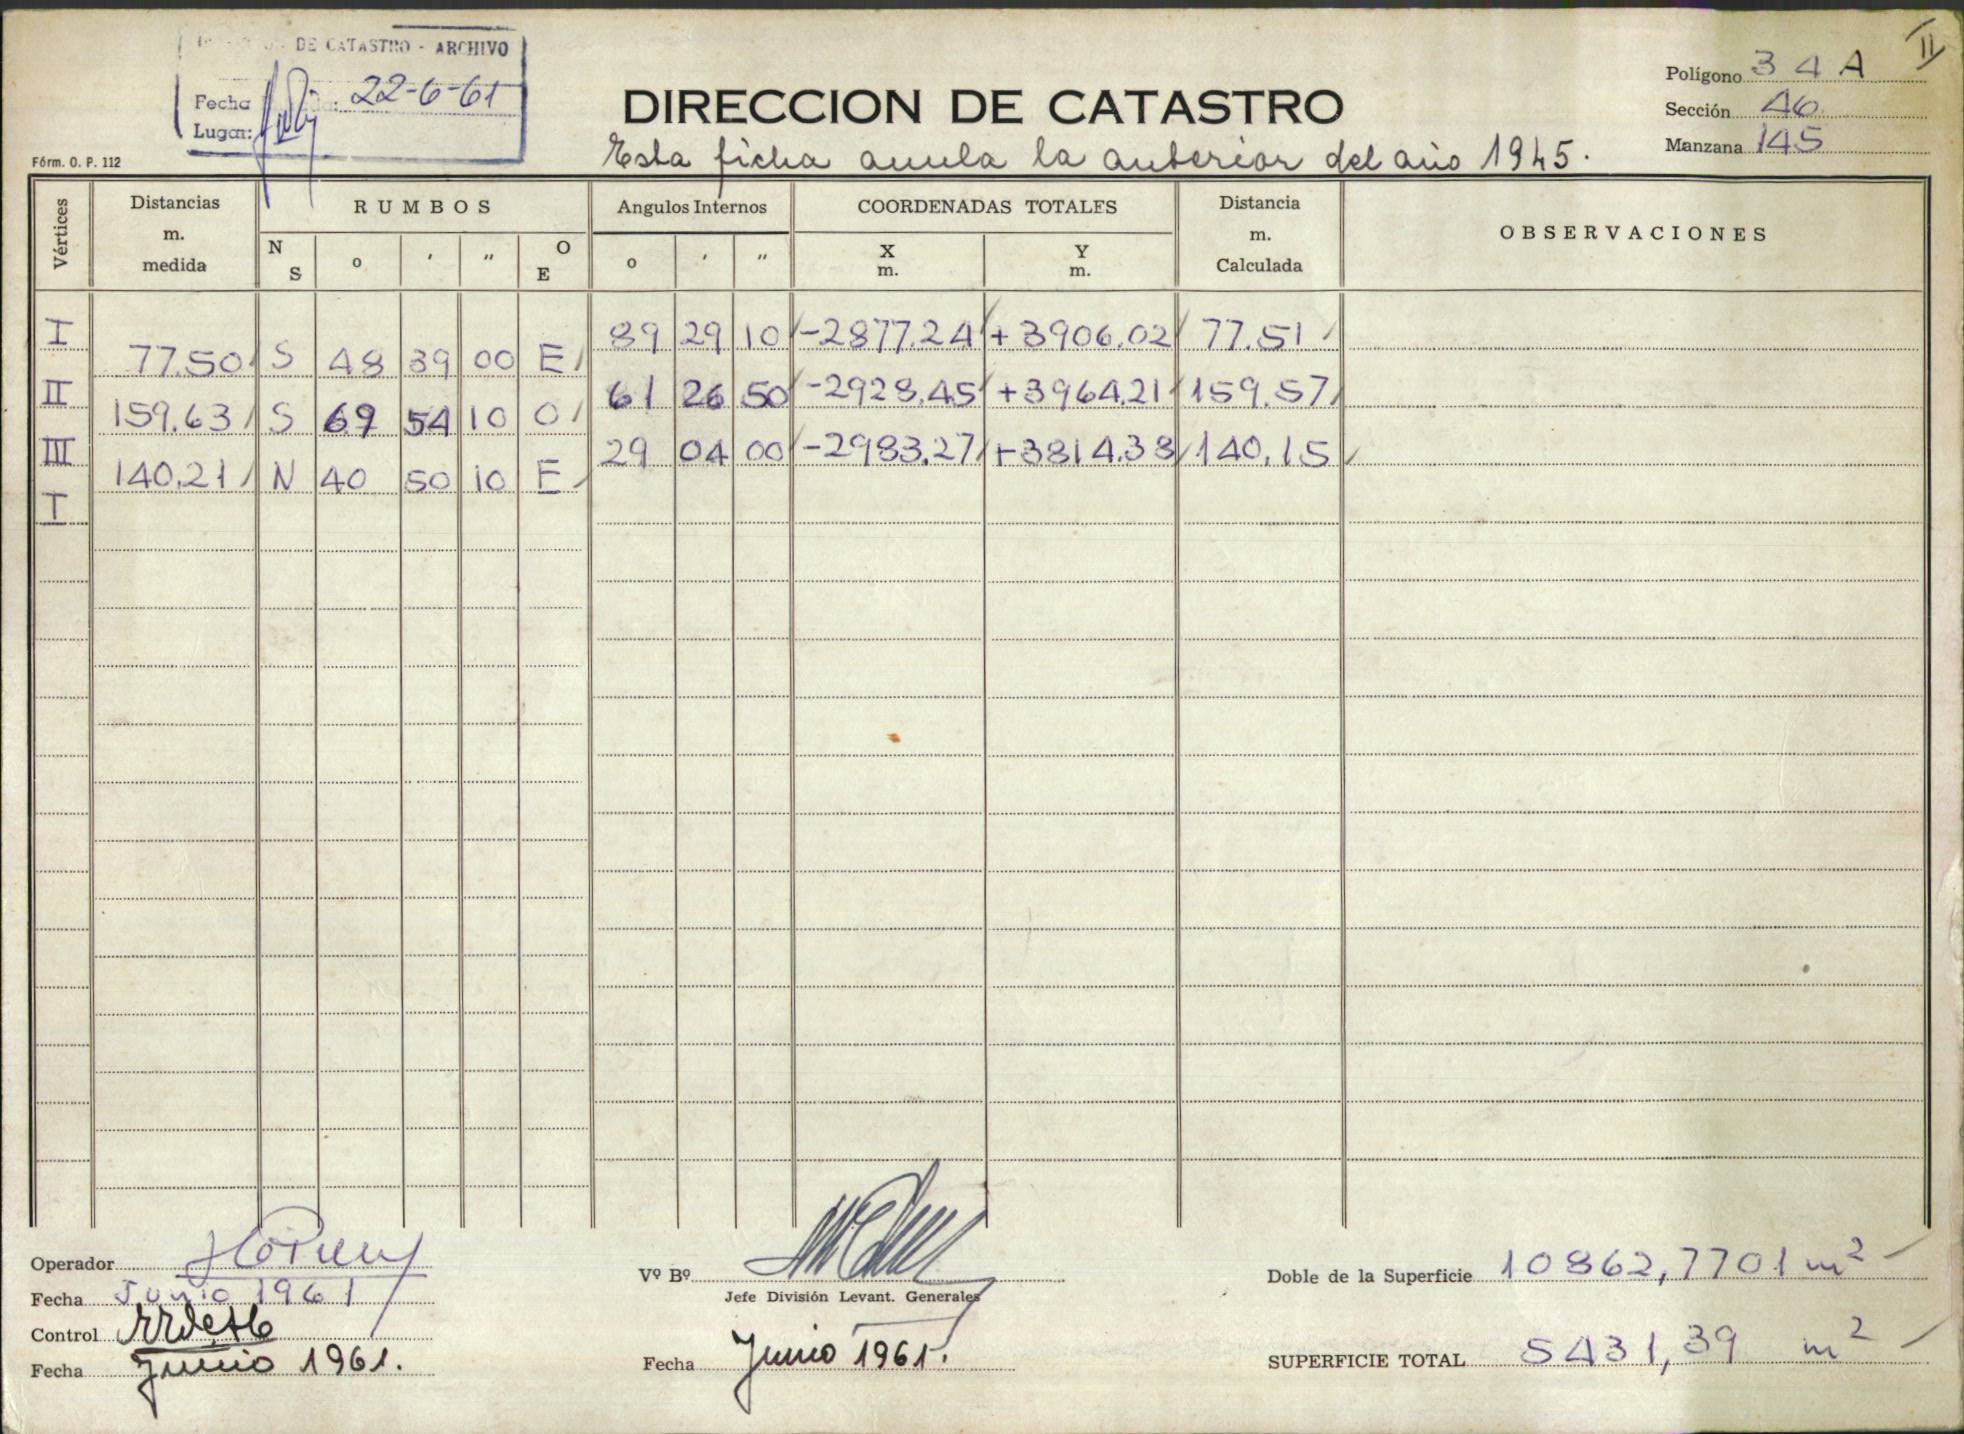 II
DE CATASTRO - ARCHIVO
Fecha 22-6-61
Lugar:
Fórm. O. P. 112
DIRECCION DE CATASTRO
Esta ficha anula la anterior del año 1945.
Polígono 34A
Sección 46
Manzana 145
Vértices Distancias m. medida RUMBOS Angulos Internos COORDENADAS TOTALES Distancia m. Calculada OBSERVACIONES
N S o ' " O E o ' " X m. Y m.
I 89 29 10 -2877.24 +3906.02 77.51
77.50 S 48 39 00 E
II 61 26 50 -2928.45 +3964.21 159.57
159.63 S 69 54 10 O
III 29 04 00 -2983.27 +3814.38 140.15
140.21 N 40 50 10 E
I
Operador
Fecha Junio 1961
Control
Fecha Junio 1961.
Vº Bº
Jefe División Levant. Generales
Fecha Junio 1961.
Doble de la Superficie 10862,7701 m²
SUPERFICIE TOTAL 5431,39 m²